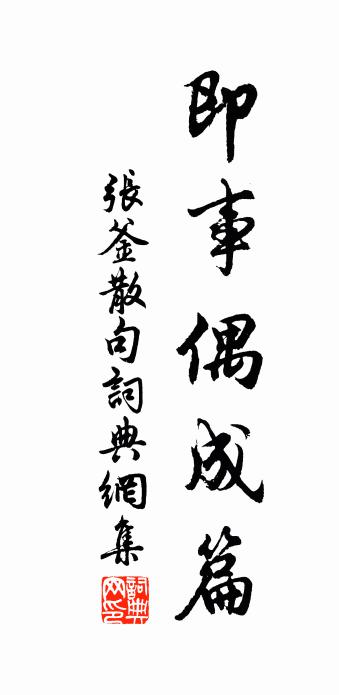 即事偶成篇
張釜散句詞典網集
詞典網印